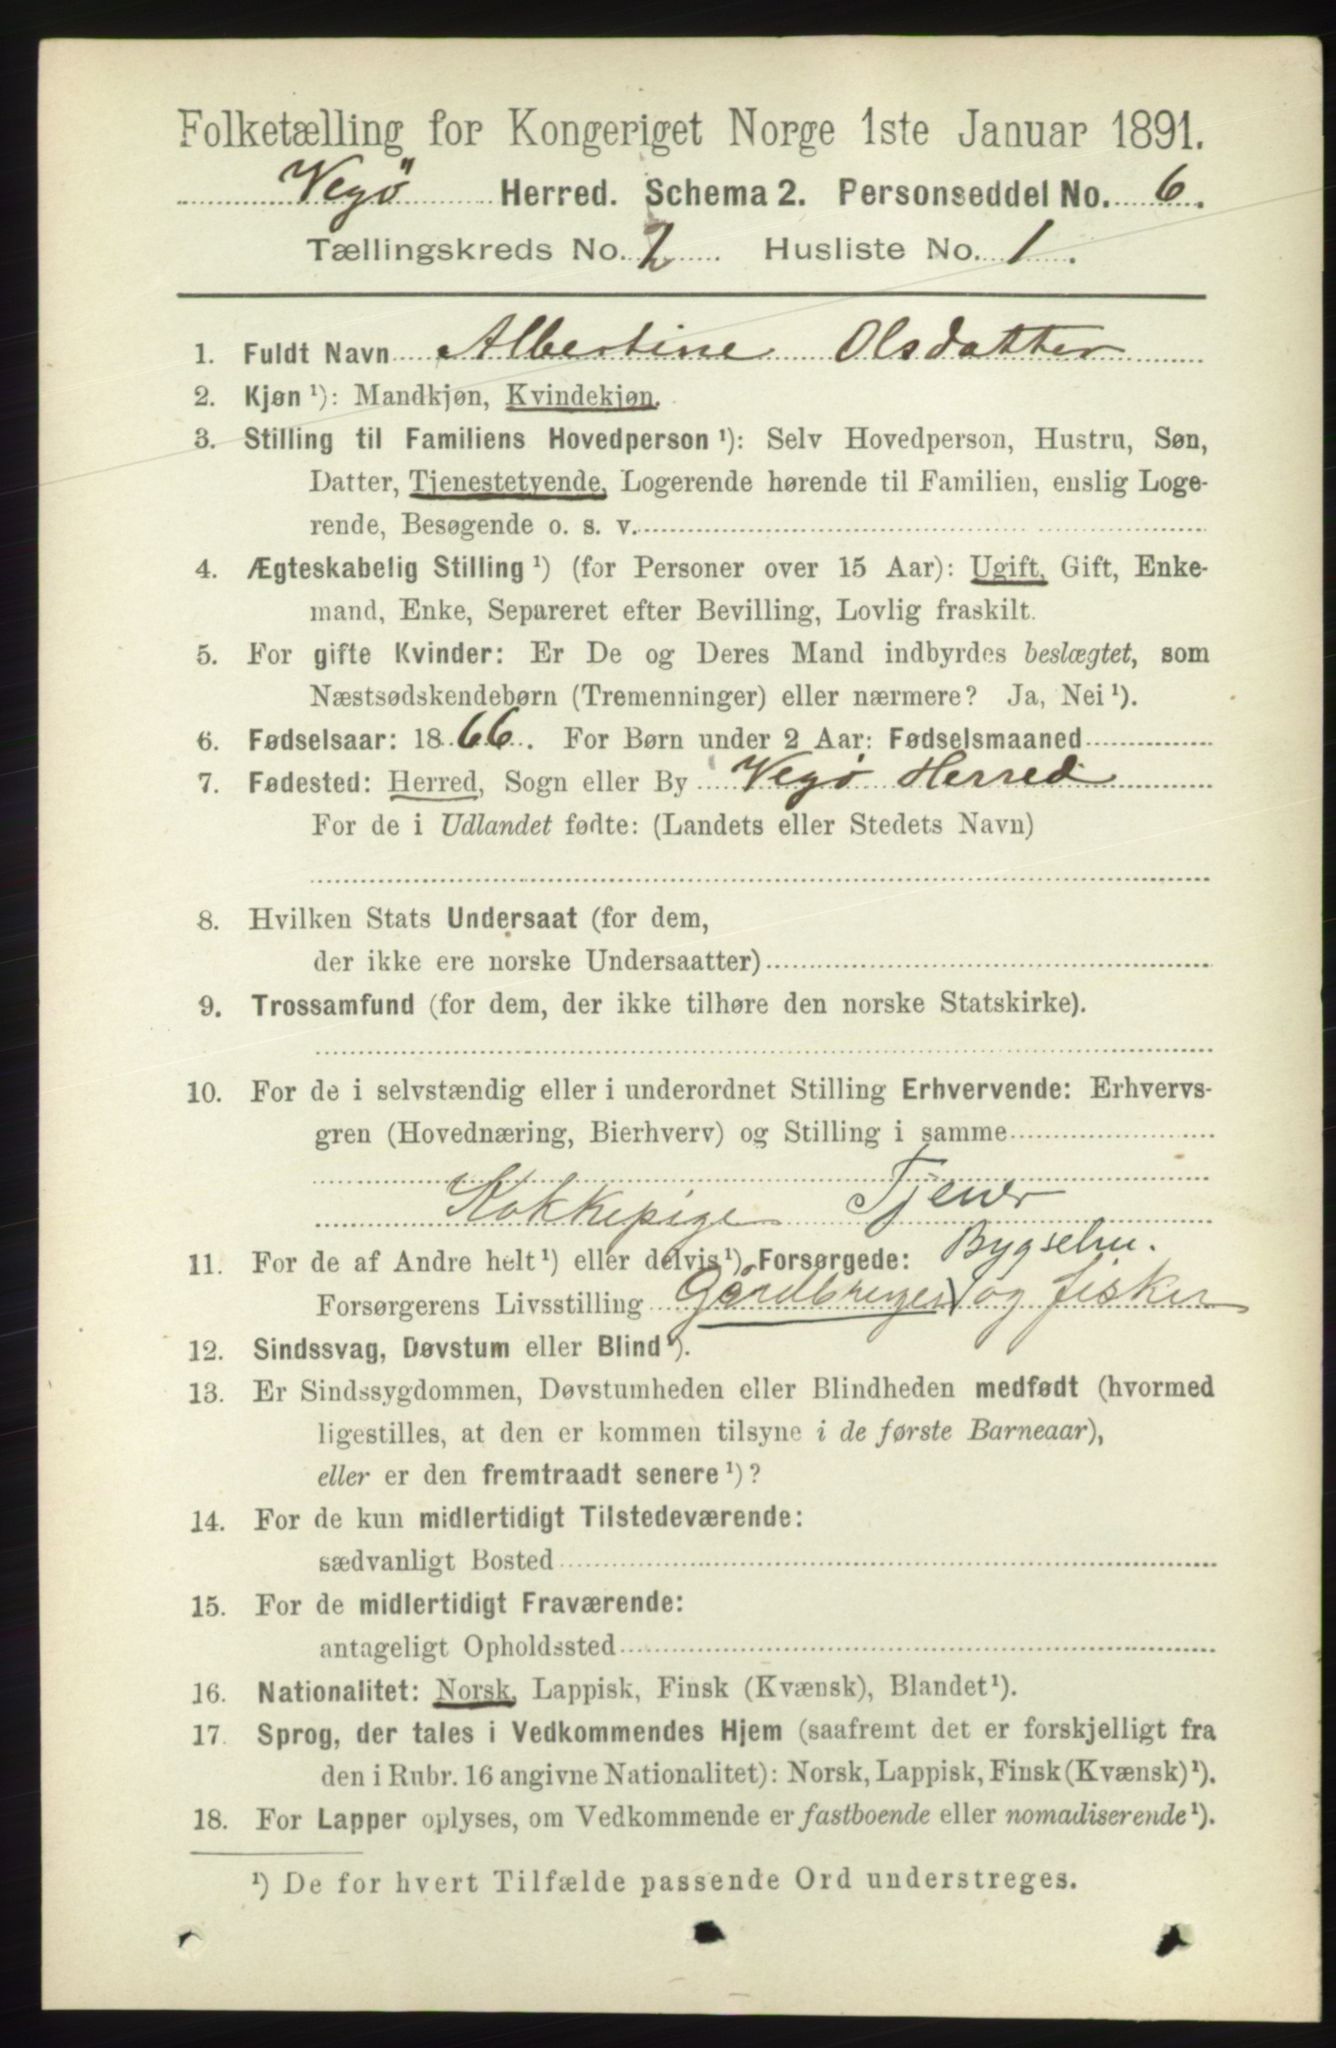 Folketælling for Kongeriget Norge 1ste Januar 1891.
Vegö Herred. Schema 2. Personseddel No. 6.
Tællingskreds No. 2 Husliste No. 1.
1. Fuldt Navn Albertine Olsdatter
2. Kjøn ¹): Mandkjøn, Kvindekjøn.
3. Stilling til Familiens Hovedperson ¹): Selv Hovedperson, Hustru, Søn,
Datter, Tjenestetyende, Logerende hørende til Familien, enslig Loge-
rende, Besøgende o. s. v.
4. Ægteskabelig Stilling ¹) (for Personer over 15 Aar): Ugift, Gift, Enke-
mand, Enke, Separeret efter Bevilling, Lovlig fraskilt.
5. For gifte Kvinder: Er De og Deres Mand indbyrdes beslægtet, som
Næstsødskendebørn (Tremenninger) eller nærmere? Ja, Nei ¹).
6. Fødselsaar: 1866. For Børn under 2 Aar: Fødselsmaaned
7. Fødested: Herred, Sogn eller By Vegö Herred
For de i Udlandet fødte: (Landets eller Stedets Navn)
8. Hvilken Stats Undersaat (for dem,
der ikke ere norske Undersaatter)
9. Trossamfund (for dem, der ikke tilhøre den norske Statskirke).
10. For de i selvstændig eller i underordnet Stilling Erhvervende: Erhvervs-
gren (Hovednæring, Bierhverv) og Stilling i samme
Kokkepige Tjener
11. For de af Andre helt ¹) eller delvis ¹) Forsørgede: Bygselbru.
Forsørgerens Livsstilling Gårdbruger og fisker
12. Sindssvag, Døvstum eller Blind ¹).
13. Er Sindssygdommen, Døvstumheden eller Blindheden medfødt (hvormed
ligestilles, at den er kommen tilsyne i de første Barneaar),
eller er den fremtraadt senere ¹)?
14. For de kun midlertidigt Tilstedeværende:
sædvanligt Bosted
15. For de midlertidigt Fraværende:
antageligt Opholdssted
16. Nationalitet: Norsk, Lappisk, Finsk (Kvænsk), Blandet ¹).
17. Sprog, der tales i Vedkommendes Hjem (saafremt det er forskjelligt fra
den i Rubr. 16 angivne Nationalitet): Norsk, Lappisk, Finsk (Kvænsk) ¹).
18. For Lapper oplyses, om Vedkommende er fastboende eller nomadiserende ¹).
¹) De for hvert Tilfælde passende Ord understreges.